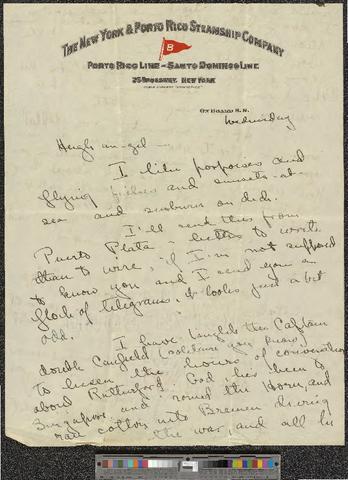 THE NEW YORK & PORTO RICO STEAMSHIP COMPANY
B
PORTO RICO LINE – SANTO DOMINGO LINE
25 BROADWAY, NEW YORK
ON BOARD S.S.
Wednesday
I like porpoises and
flying fishes and sunsets-at-
sea and sunburn on deck.
I'll send this from
Puerto Plata – better to write
than to wire; if I'm not supposed
to know you and I send you a
flock of telegrams, it looks just a bit
odd.
I have taught the Captain
double Canfield (solitaire you know)
to lessen the hours of conversation
about Rutherford. God he's been to
Singapore and round the Horn, and
ran cotton into Bremen during
the war, and all he